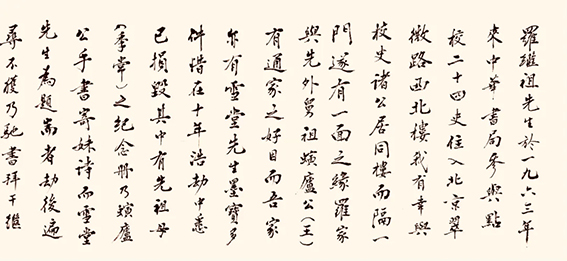 羅繼祖先生於一九六三年
來中華書局參與點
校二十四史住入北京翠
微路西北樓我有幸與
校史諸公居同樓而隔一
門遂有一面之緣羅家
與先外舅祖螾廬公(王)
有通家之好目而吾家
亦有雪堂先生墨寶多
件惜在十年浩劫中悉
已損毀其中有先祖母
(季常)之紀念冊乃螾廬
公手書寄妹詩而雪堂
先生為題耑者劫後遍
尋不獲乃馳書拜干繼